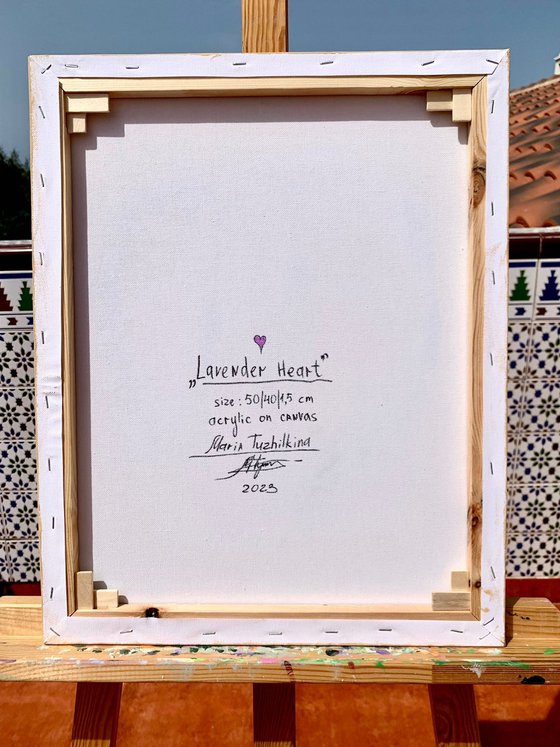 „Lavender Heart”
size: 50/40/1,5 cm
acrylic on canvas
Maria Tuzhilkina
2023